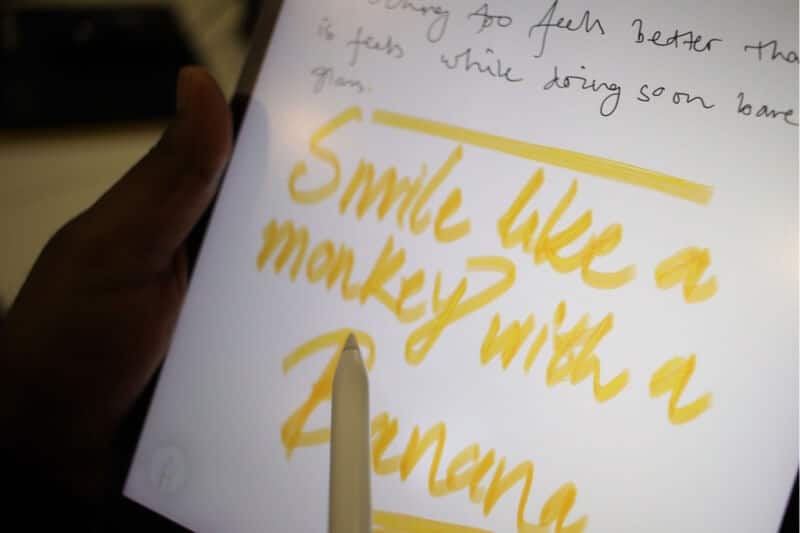 too feels better than
is feels while doing so on bare
glass.
Smile like a
monkey with a
Banana